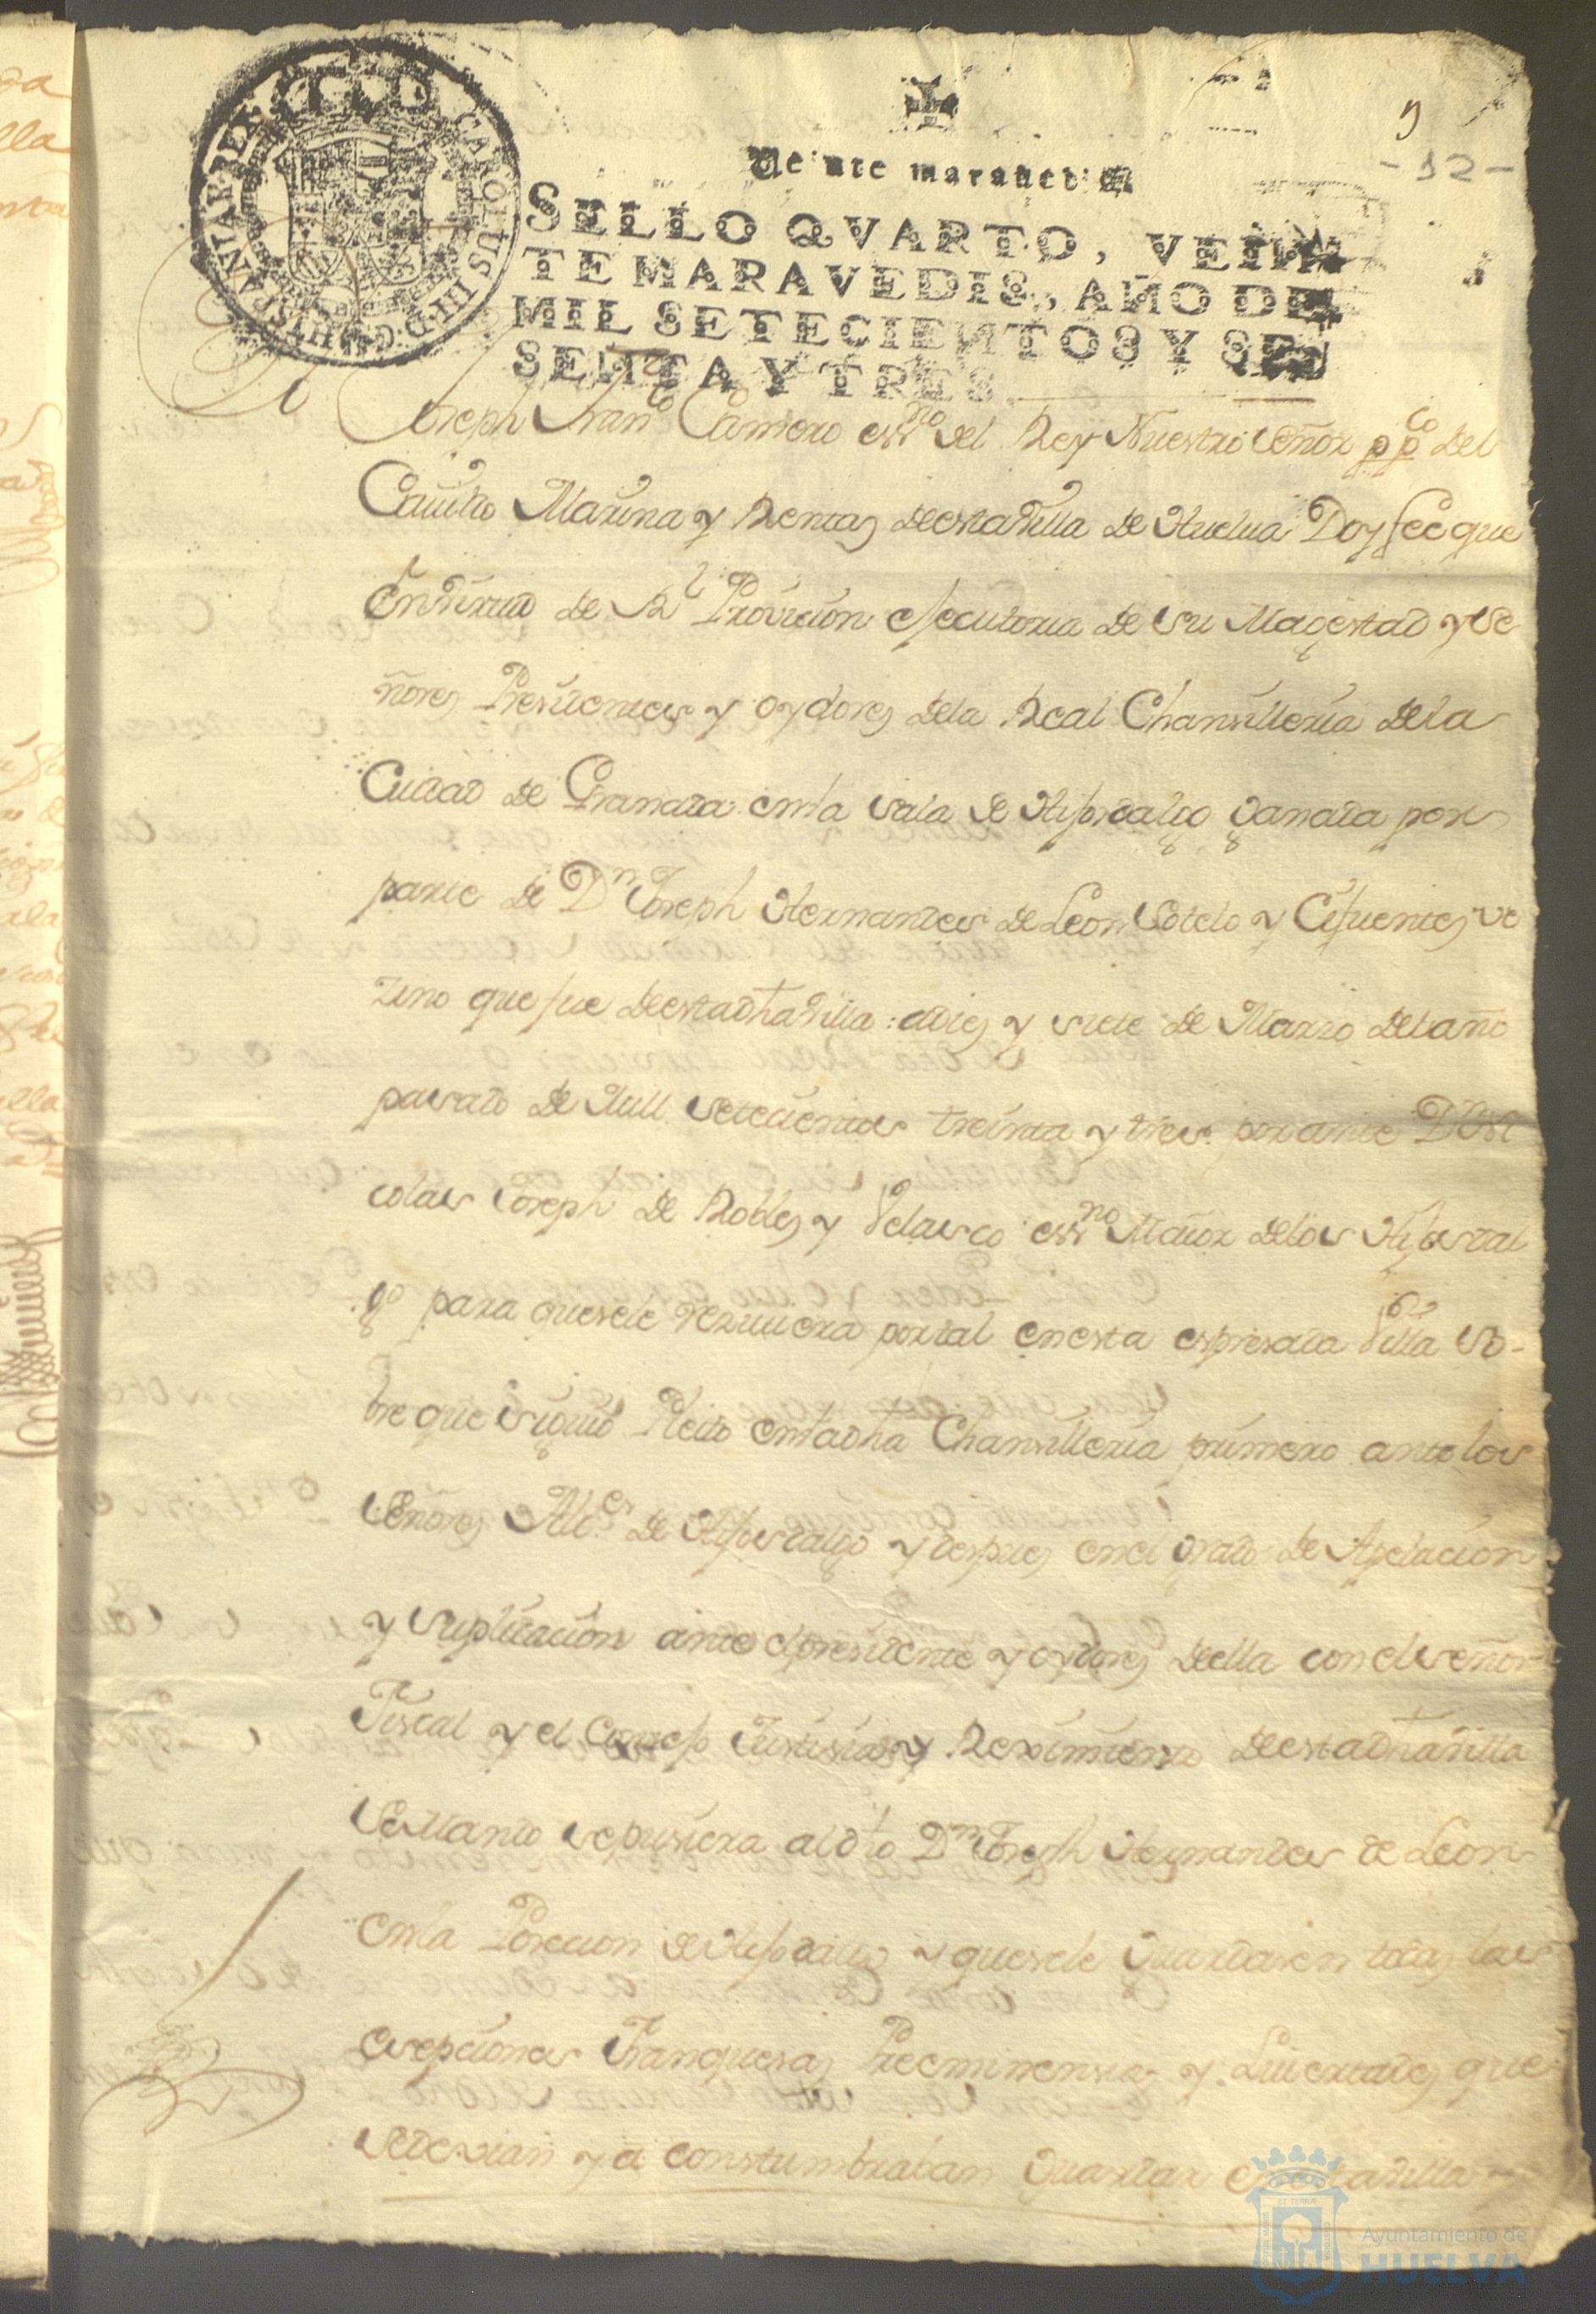 CAROLUS III D G HISPANIAR REX
9
-12-
Veinte maravedis
SELLO QVARTO, VEIN
TE MARAVEDIS, AÑO DE
MIL SETECIENTOS Y SE
SENTA Y TRES
Joseph Franco Camero essno del Rey Nuestro Señor ppco del
Cauildo Marina y Rentas deesta Villa de Huelua Doy fee que
En virtud de Rl Provicion ejecutoria de su Magestad y se
ñores Presidentes y oydores dela Real Chansilleria dela
Ciudad de Granada enla Sala de Hijosdalgo ganada por
parte de Dn Joseph Hernandes de Leon Sotelo y Cifuentes ve
zino que fue deestadha Villa: adies y siete de Marzo delaño
pasado de Mill setecientos treinta y tres por ante Dn Ni
colas Joseph de Robles y Velasco essno Maior delos Hijosdal
go para quesele reziuiera portal enesta espresada Villa so-
breque siguio Pleito enladha Chansilleria primero antelos
Señores Alcs de Hijosdalgo y despues enel grado de Apelacion
y suplicacion ante elpresidente y oydores deella con elseñor
Fiscal y el Consejo Justisia y Reximiento deestadha villa
Semando sepusiera aldho Dn Joseph Hernandes de Leon
enla Posecion de Hijodalgo y quesele Guardasen todas las
esepciones Franquesas Preeminensias y Liuertades que
sedevian y a constumbraban Guardar enesta Villa
Ayuntamiento de
HUELVA